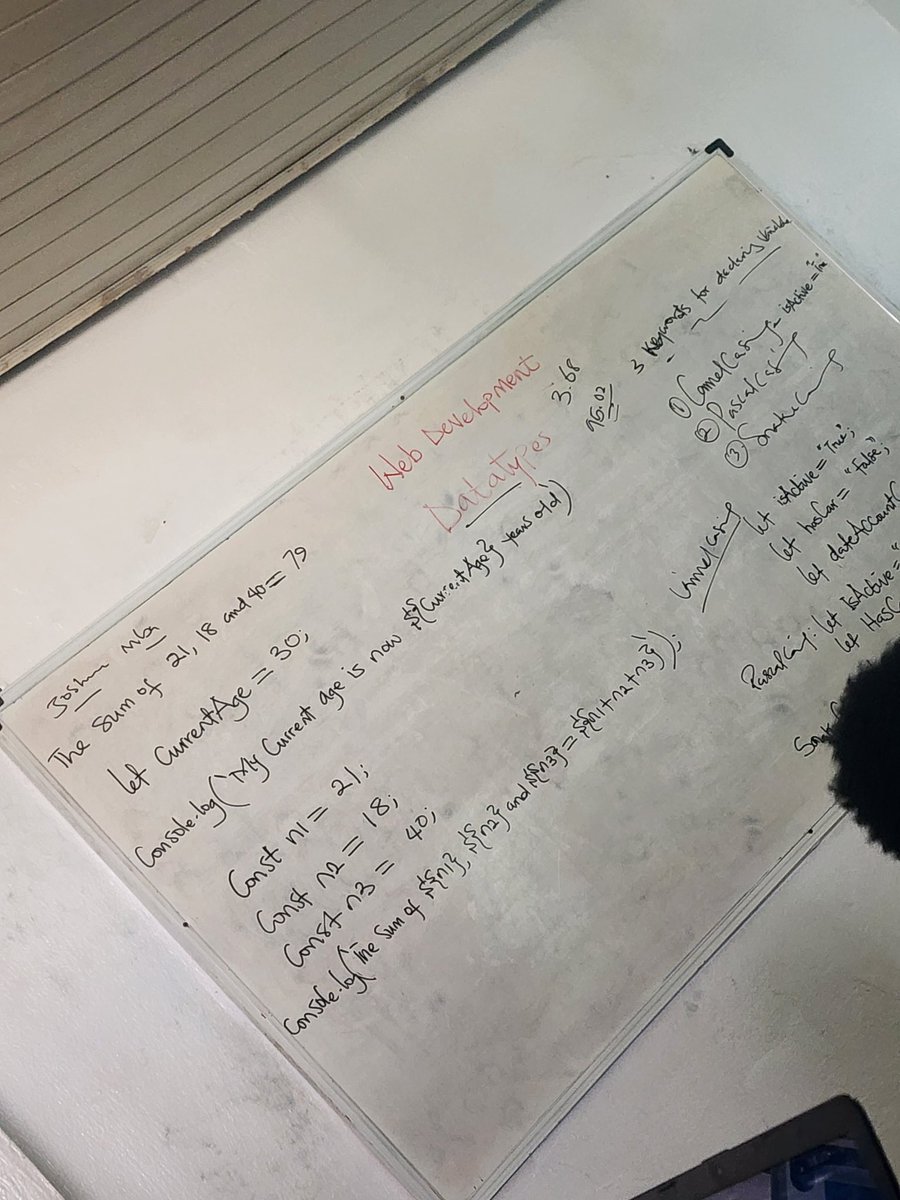 Web Development
Datatypes
3.68
16:02
The sum of 21, 18 and 40 = 79
let currentAge = 30;
Console.log(`My Current age is now ${CurrentAge} years old)
Const n1 = 21;
Const n2 = 18;
Const n3 = 40;
Console.log(`The sum of ${n1}, ${n2} and ${n3} = ${n1+n2+n3}`);
3 Keywords for declaring
① CamelCasing - isActive = "True"
② PascalCasing
③ Snake
let isActive = "True";
let hasCar = "False";
let dateAccount
let IsActive = "
let Has